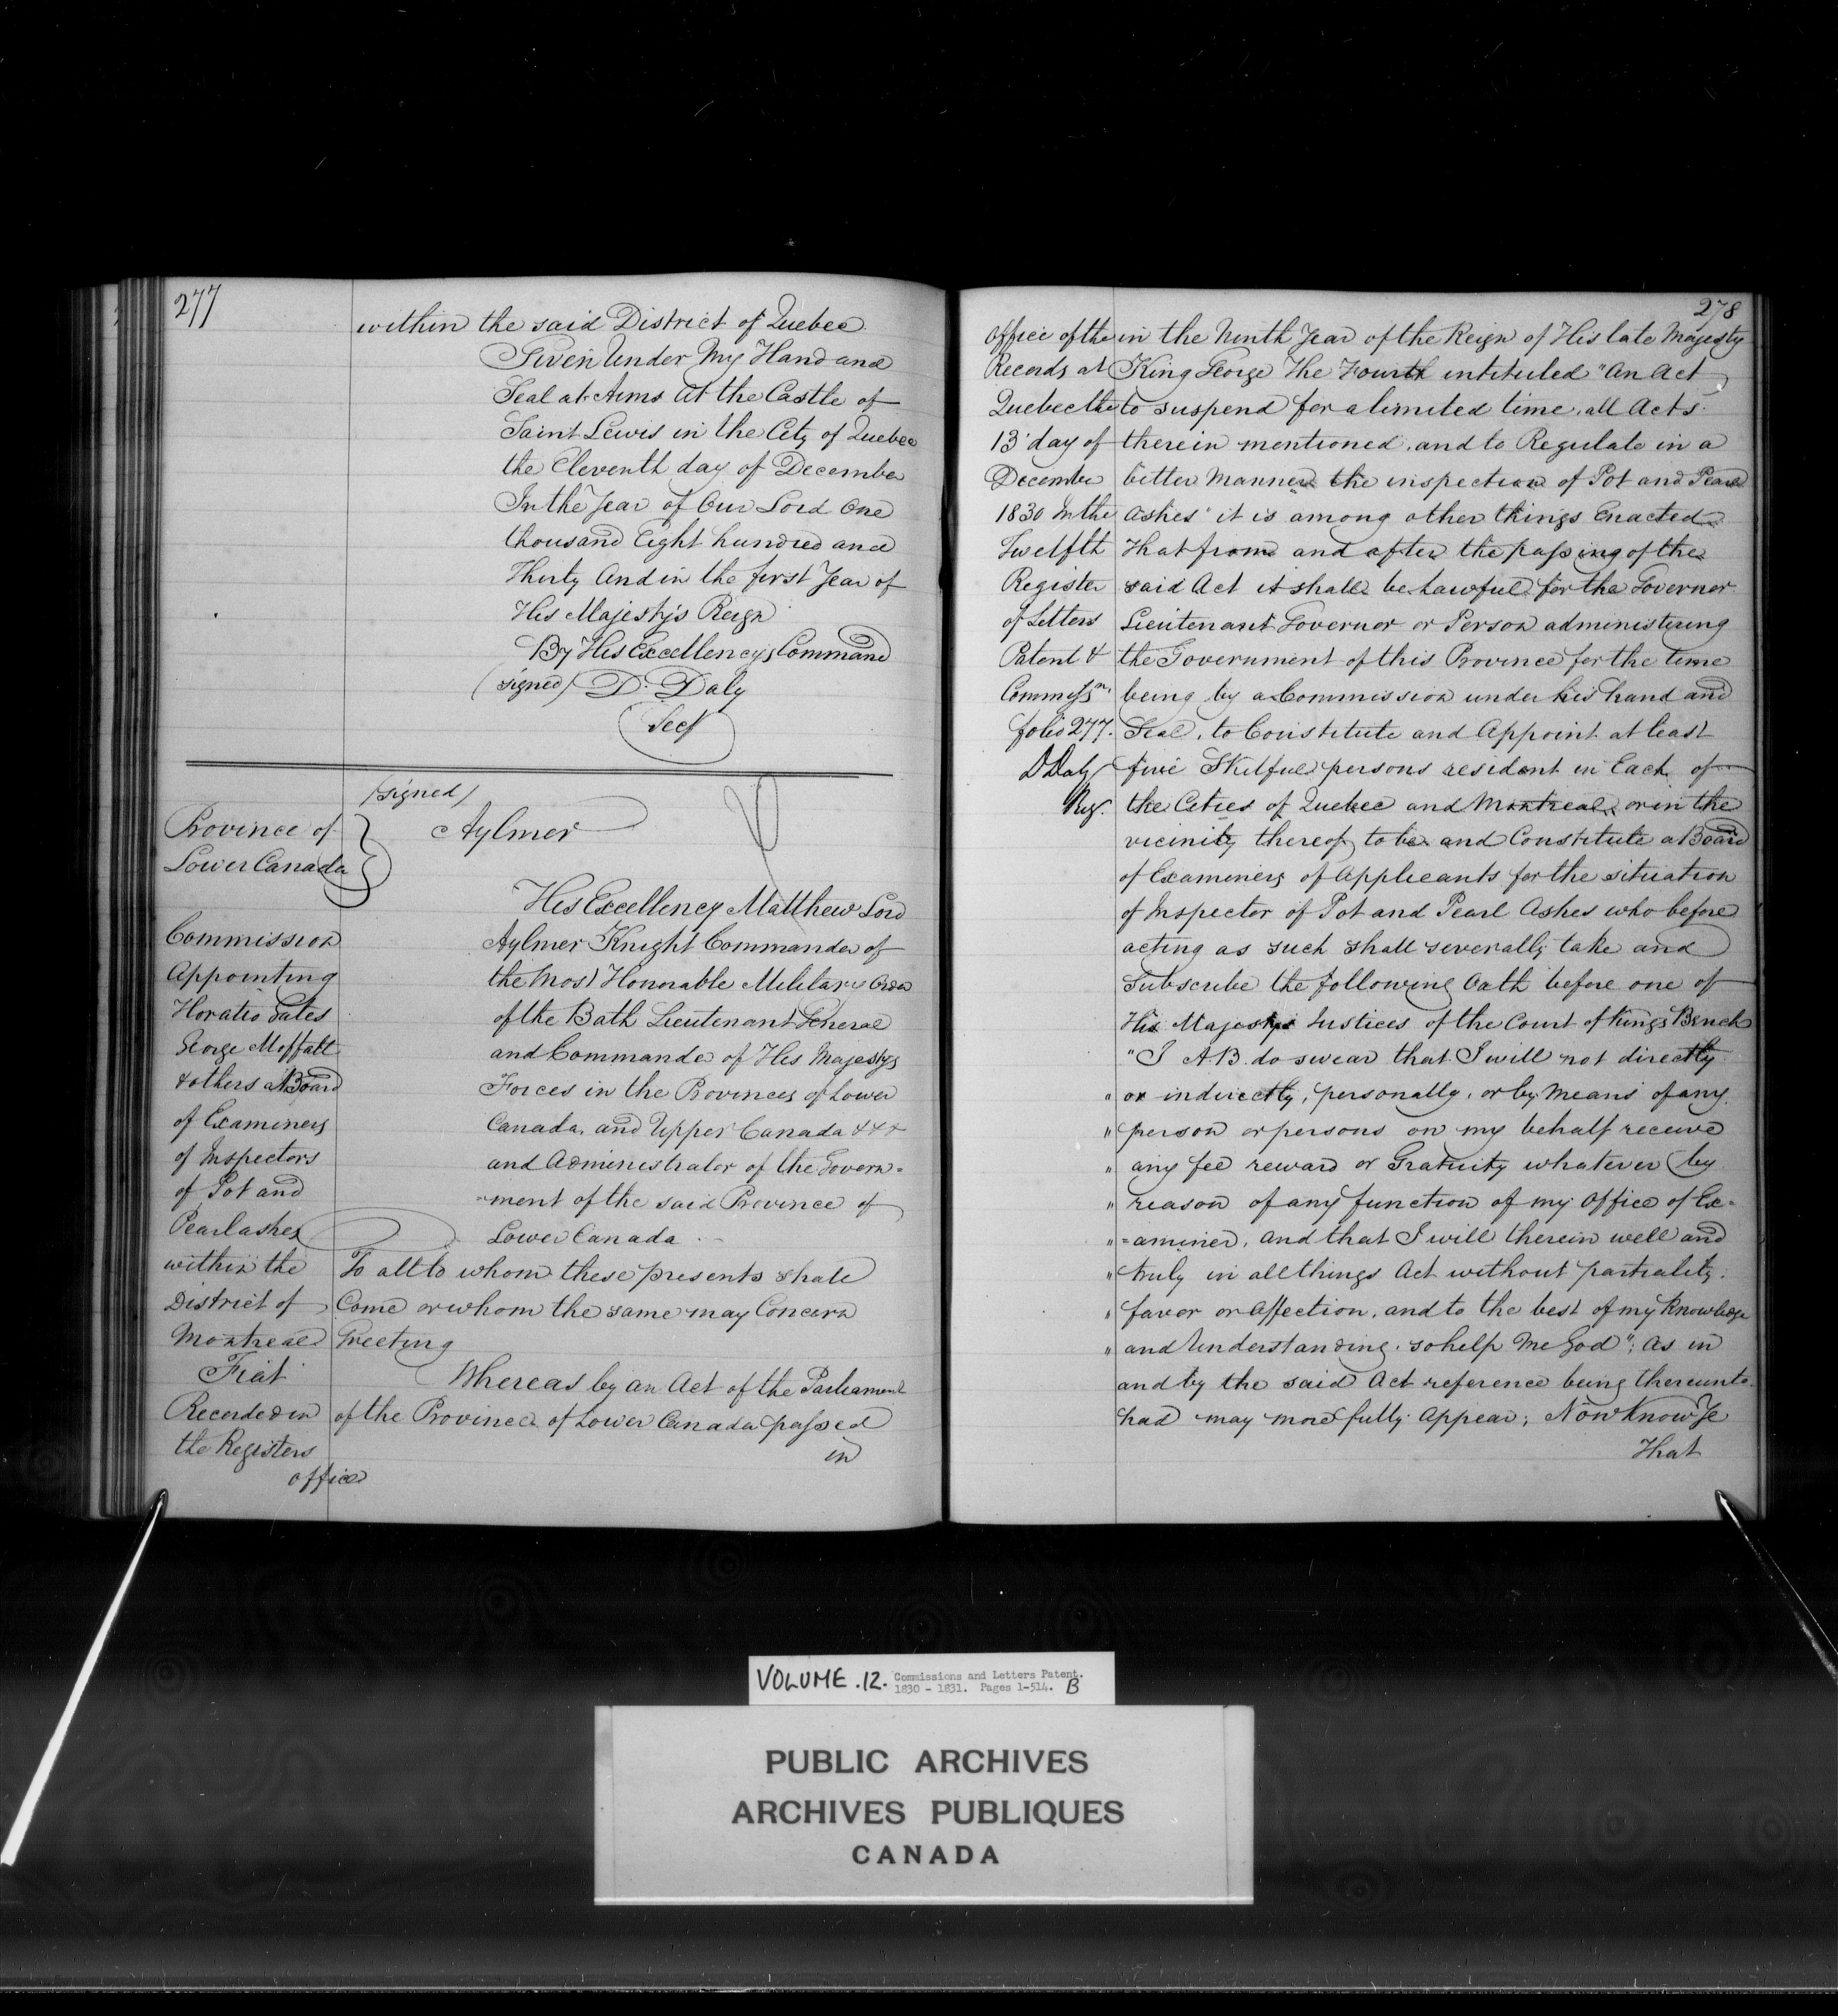 277
within the said District of Quebec
Given Under My Hand and
Seal at Arms at the Castle of
Saint Lewis in the City of Quebec
the Eleventh day of December
In the Year of Our Lord One
thousand Eight hundred and
Thirty And in the first Year of
His Majesty's Reign
By His Excellency's Command
(signed) D. Daly
Secy
(signed)
Aylmer
Province of
Lower Canada
His Excellency Matthew Lord
Aylmer Knight Commander of
the Most Honorable Military Order
of the Bath Lieutenant General
and Commander of His Majestys
Forces in the Provinces of Lower
Canada, and Upper Canada &&&
and Administrator of the Govern=
=ment of the said Province of
Lower Canada
To all to whom these presents shall
Come or whom the same may Concern
Greeting
Whereas by an Act of the Parliament
of the Province of Lower Canada passed
in
Commission
Appointing
Horatio Gates
George Moffatt
& others a Board
of Examiners
of Inspectors
of Pot and
Pearl ashes
within the
District of
Montreal
Fiat
Recorded in
the Registers
office
278
Office of the
Records at
Quebec the
13 day of
December
1830 In the
Twelfth
Register
of Letters
Patent &
Commissns
folio 277.
D Daly
Reg.
in the Ninth Year of the Reign of His late Majesty
King George The Fourth intituled "An Act
to suspend for a limited time, all Acts
therein mentioned, and to Regulate in a
better Manner the inspection of Pot and Pearl
Ashes" it is among other things Enacted
That from and after the passing of the
said Act it shall be Lawful for the Governor
Lieutenant Governor or Person administering
the Government of this Province for the time
being by a Commission under his hand and
Seal, to Constitute and Appoint at least
five Skilful persons resident in Each of
the Cities of Quebec and Montreal, or in the
vicinity thereof, to be and Constitute a Board
of Examiners of Applicants for the situation
of Inspector of Pot and Pearl Ashes who before
acting as such shall severally take and
Subscribe the following Oath before one of
His Majestys Justices of the Court of Kings Bench
"I A.B. do swear that I will not directly
" or indirectly, personally, or by Means of any
" person or persons on my behalf receive
" any fee reward or Gratuity whatever by
" reason of any function of my Office of Ex=
" =aminer, and that I will therein well and
" truly in all things Act without partiality,
" favor or Affection, and to the best of my Knowledge
" and Understanding, so help Me God"; As in
and by the said Act reference being thereunto
had may more fully Appear; Now Know Ye
That
VOLUME .12. Commissions and Letters Patent.
1830 - 1831. Pages 1-514. B
PUBLIC ARCHIVES
ARCHIVES PUBLIQUES
CANADA